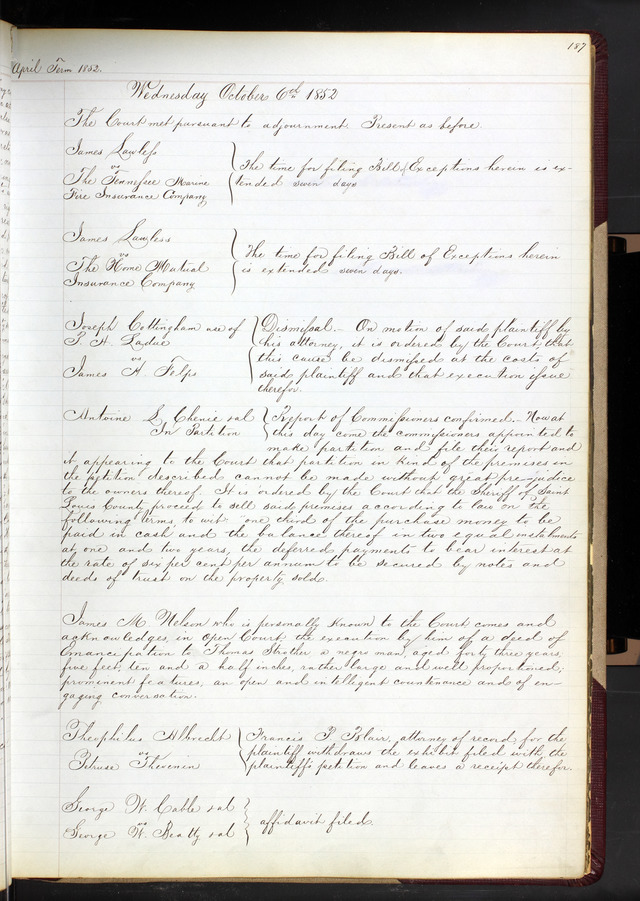 187
April Term 1852.
Wednesday October 6th 1852
The Court met pursuant to adjournment. Present as before.
James Lawless
vs
The Tennessee Marine
Fire Insurance Company
The time for filing Bill of Exceptions herein is ex-
tended seven days
James Lawless
vs
The Home Mutual
Insurance Company
The time for filing Bill of Exceptions herein
is extended seven days.
Joseph Cottingham use of
P. H. Ladue
vs
James H Felps
Dismissal.- On motion of said plaintiff by
his attorney, it is ordered by the Court, that
this cause be dismissed at the costs of
said plaintiff and that execution issue
therefor.
Antoine L. Chenie et al
In Partition
Report of Commissioners confirmed.- Now at
this day come the commissioners appointed to
make partition and file their report and
it appearing to the Court that partition in kind of the premises in
the petition described cannot be made without great prejudice
to the owners thereof. It is ordered by the Court that the Sheriff of Saint
Louis County proceed to sell said premises according to law on the
following terms, to wit: one third of the purchase money to be
paid in cash and the balance thereof in two equal instalments
at one and two years, the deferred payments to bear interest at
the rate of six per cent per annum to be secured by notes and
deeds of trust on the property sold.
James M Nelson who is personally known to the Court comes and
acknowledges, in open Court, the execution by him of a deed of
Emancipation to Thomas Strother a negro man, aged forty three years
five feet, ten and a half inches, rather large and well proportioned;
prominent features, an open and intellegent countenance and of en-
gaging conversation.
Theophilus Albrecht
vs
Thevenin
Francis P Blair, attorney of record for the
plaintiff withdraws the exhibit filed with the
plaintiff's petition and leaves a receipt therefor.
George W. Cable et al
vs
George W. Beatty et al
affidavit filed.